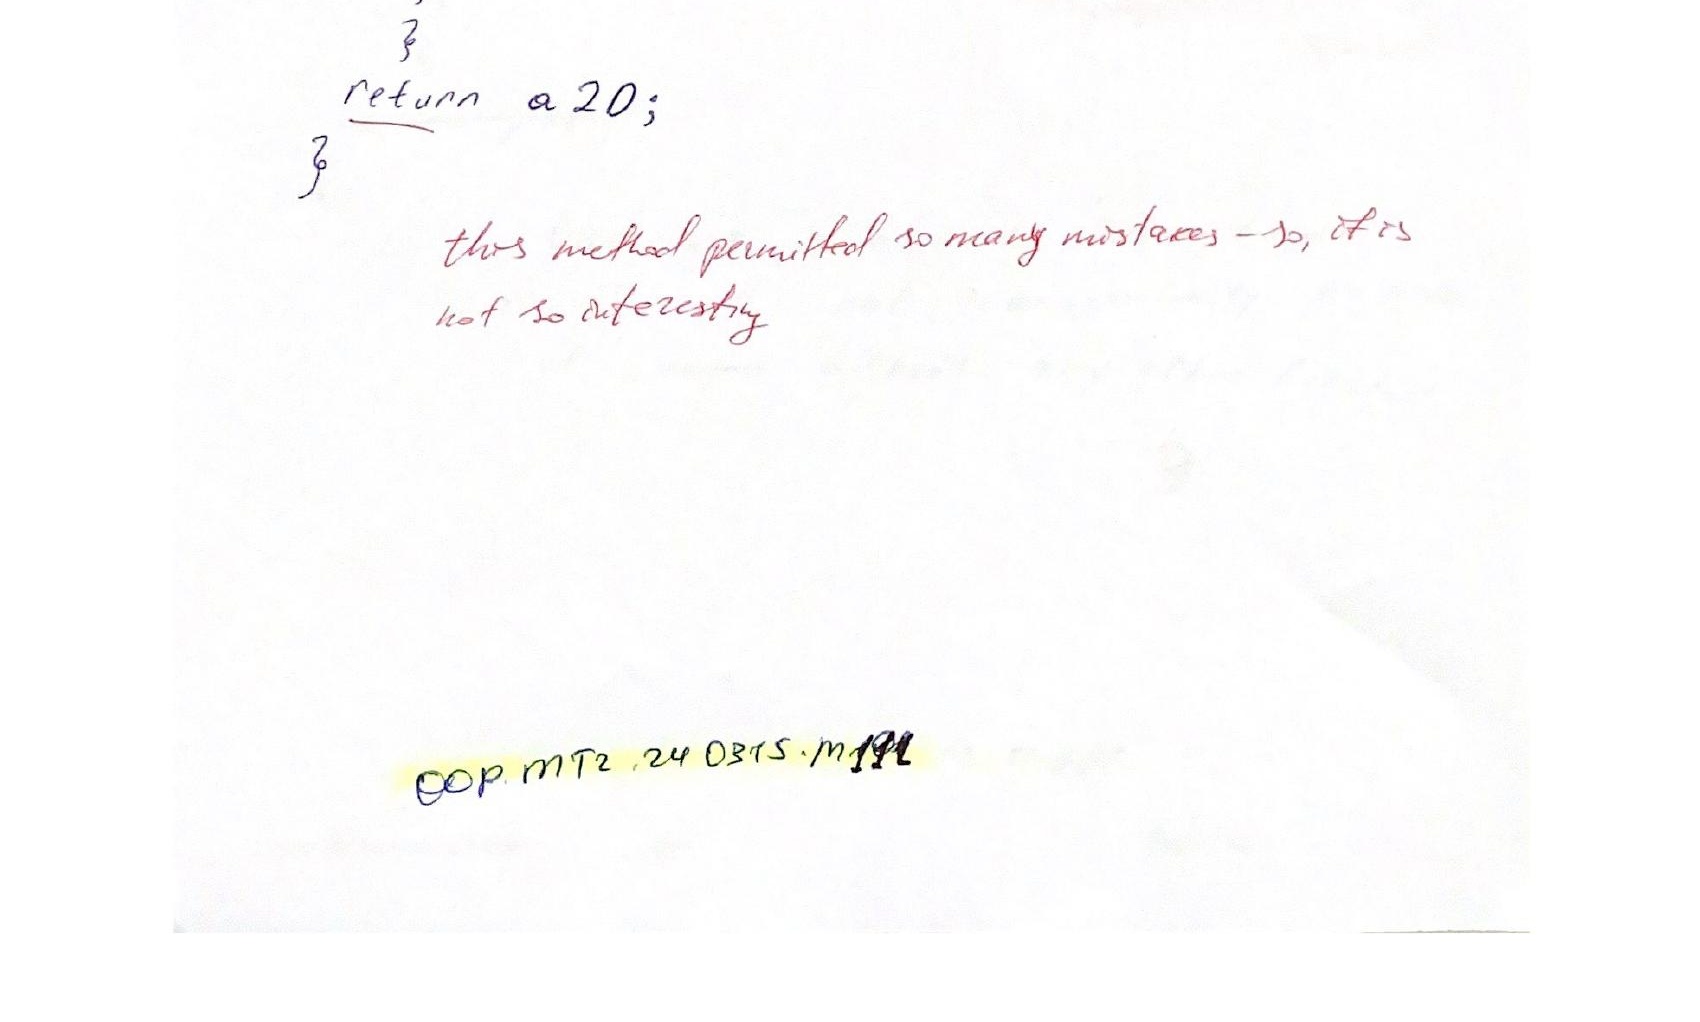 }
return a20;
}
this method permitted so many mistakes – so, it is
not so interesting
OOP.MT2.240315.M